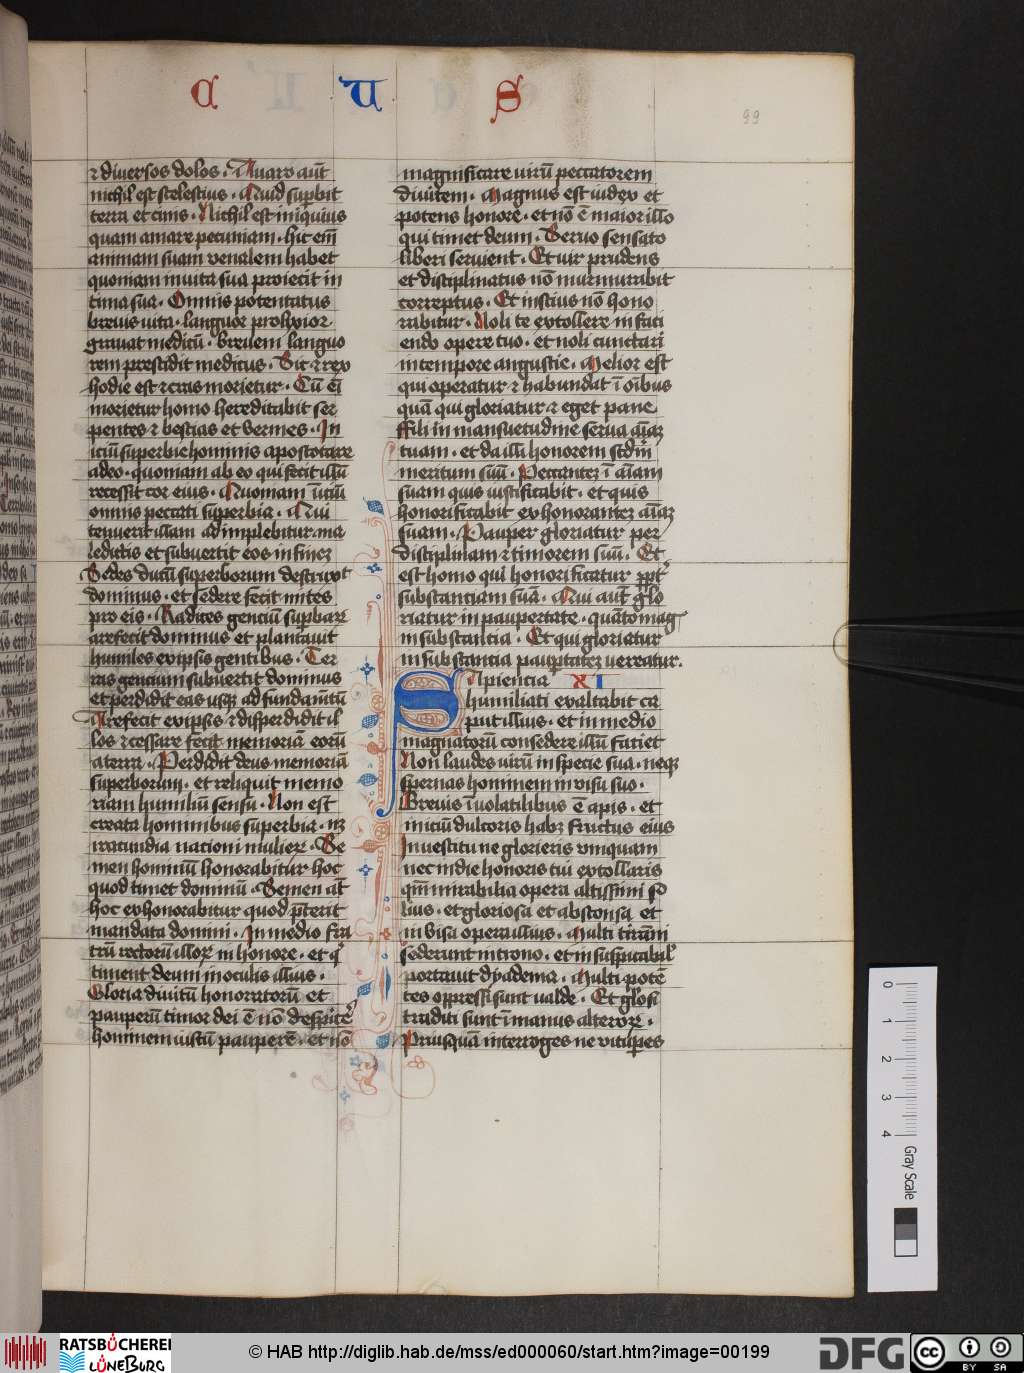 C U S
99
⁊ diuersos dolos. Auaro aūt
nichil est scelestius. Quid suꝑbit
terra et cinis. Nichil est iniquius
quam amare pecuniam. hic em̄
animam suam venalem habet
quoniam in uita sua proiecit in
tima sua. Omnis potentatus
breuis vita. languor prolixior
grauat medicū. breuem languo
rem prescidit medicus. Sic ⁊ rex
hodie est ⁊ cras morietur. Cū em̄
morietur homo hereditabit ser
pentes ⁊ bestias et vermes. In
iciū superbie hominis apostotare
a deo. quoniam ab eo qui fecit illū
recessit cor eius. Quoniam īiciū
omnis peccati superbia. Qui
tenuerit illam adimplebitur ma
ledictis et subuertit eos in finez
Sedes ducū superborum destruxt
dominus. et sedere fecit mites
pro eis. Radices genciū suꝑbarꝝ
arefecit dominus et plantauit
humiles ex ipsis gentibus. Ter
ras gencium subuertit dominus
et perdidit eas usqꝫ ad fundam̄tū
Arefecit ex ipsis ⁊ disperdidit il
los ⁊ cessare fecit memoriā eorū
a terra. Perdidit deus memoriā
superborum. et reliquit memo
riam humiliū sensū. Non est
creata hominibus superbia. nꝫ
iracundia nacioni mulierꝝ. Se
men hominū honorabitur hoc
quod timet dominū. Semen at̄
hoc exhonorabitur quod p̄terit
mandata domini. In medio fra
trū rectorū illorꝝ in honore. et q̄
timent deum in oculis illius.
Gloria diuitū honoratorū et
pauperū timor dei ē nō despicẽ
hominem iustū pauperē. et nō
magnificare uirū peccatorem
diuitem. Magnus est iudex et
potens honore. et nō ē maior illo
qui timet deum. Seruo sensato
liberi seruient. Et uir prudens
et disciplinatus nō murmurabit
correptus. Et inscius nō hono
rabitur. Noli te extollere in faci
endo opere tuo. et noli cunctari
in tempore angustie. Melior est
qui operatur ⁊ habundat ī oībus
quā qui gloriatur ⁊ eget pane
Fili in mansuetudine serua aīaꝫ
tuam. et da illi honorem scdm̄
meritum suū. Peccantez ī aīam
suam quis iustificabit. et quis
honorificabit exhonorantez aīaꝫ
suam. Pauper gloriatur per
disciplinam ⁊ timorem suū. Et
est homo qui honorificatur ꝓpt̄
substantiam suā. Qui aut̄ glo
riatur in paupertate. quāto maḡ
in substantia. Et qui gloriatur
in substantia pauꝑtatez uereatur.
Sapientia XI
humiliati exaltabit ca
put illius. et in medio
magnatorū consedere illū faciet
Non laudes uirū in specie sua. neqꝫ
spernas hominem in visu suo.
Breuis ī uolatilibus ē apis. et
iniciū dulcoris habꝫ fructus eius
In uestitu ne glorieris vnquam
nec in die honoris tui extollaris
qm̄ mirabilia opera altissimi so
lius. et gloriosa et absconsa et
in uisa opera illius. Multi tirāni
sederunt in trono. et insuspicabil̄
portauit dyadema. Multi potē
tes oppressi sunt ualde. Et glōsi
traditi sunt ī manus alterorꝝ.
Priusquā interroges ne vituꝑes
0 1 2 3 4
Gray Scale
RATSBÜCHEREI
LÜNEBURG
© HAB http://diglib.hab.de/mss/ed000060/start.htm?image=00199
DFG
cc BY SA